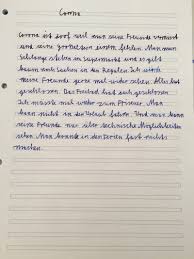 Corona
Corona ist doof weil man seine Freunde vermisst
und seine großeltern einem fehlen. Man muss
Schlange stehen im Supermarkt und es gibt
kaum noch Sachen in den Regalen. Ich würde
meine Freunde gerne mal wider sehen. Alles hat
geschlossen. Das Freibad hat auch geschlossen.
Ich müsste mal wider zum Friseur. Man
kann nicht in den Urlaub fahren. Und man kann
seine Freunde nur über technische Möglichkeiten
sehen. Man konnte in den Ferien fast nichts
machen.